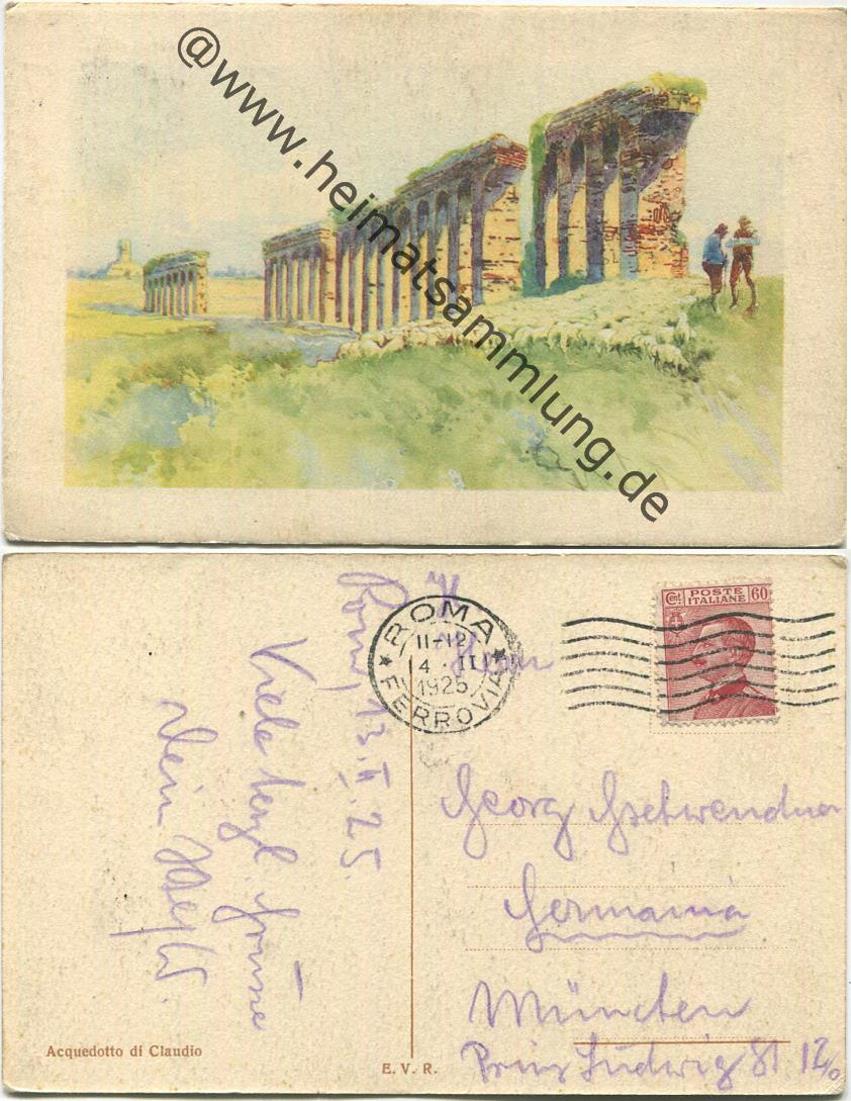 @www.heimatsammlung.de
Cent. POSTE ITALIANE 60
ROMA
11-12
14·II
1925
FERROVIA
Herrn
Georg Gschwendtner
Germania
München
Prinz Ludwig St 12/0
Rom, 13.II.25.
Viele herzl. Grüsse
Dein
Acquedotto di Claudio
E. V. R.